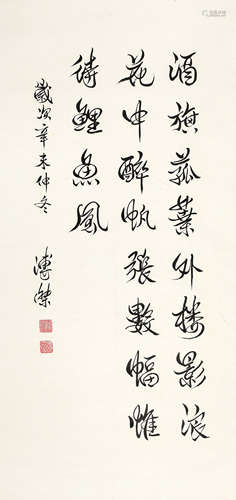 酒旗菰葉外楼影浪
花中醉帆張數幅惟
待鯉魚風
歲次辛未仲冬 溥傑